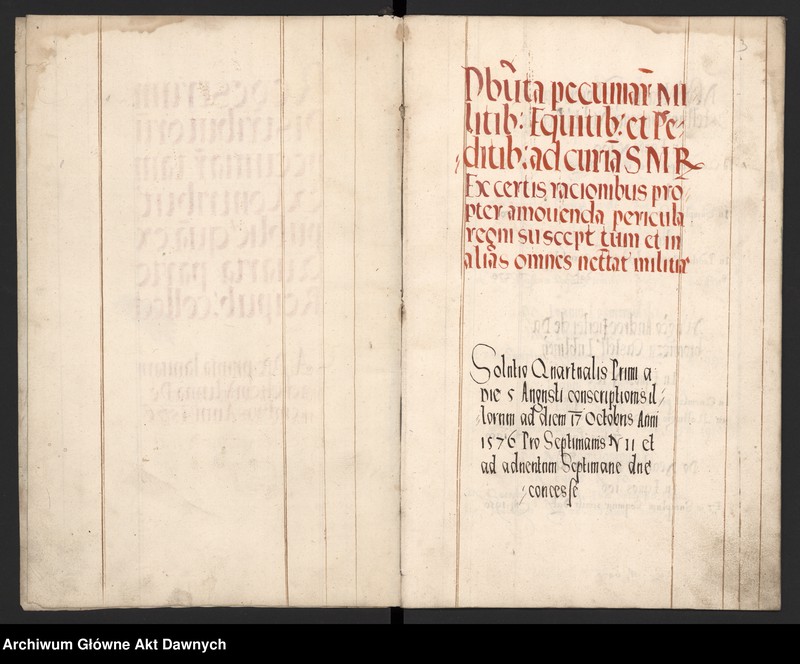 3
Dbūta pecuniar̄ Mi
litib: Equitib: et Pe-
ditib: ad curiā S M R
Ex certis racionibus pro-
pter amouenda pericula
regni suscept tum et in
alias omnes necc̄tat militiæ
Solutio Quartualis Primi a
Die 5 Augusti conscriptionis il-
lorum ad diem 17 Octobris Anni
1576 Pro Septimanis N 11 et
ad aduentum Septimane due
concesse
Archiwum Główne Akt Dawnych